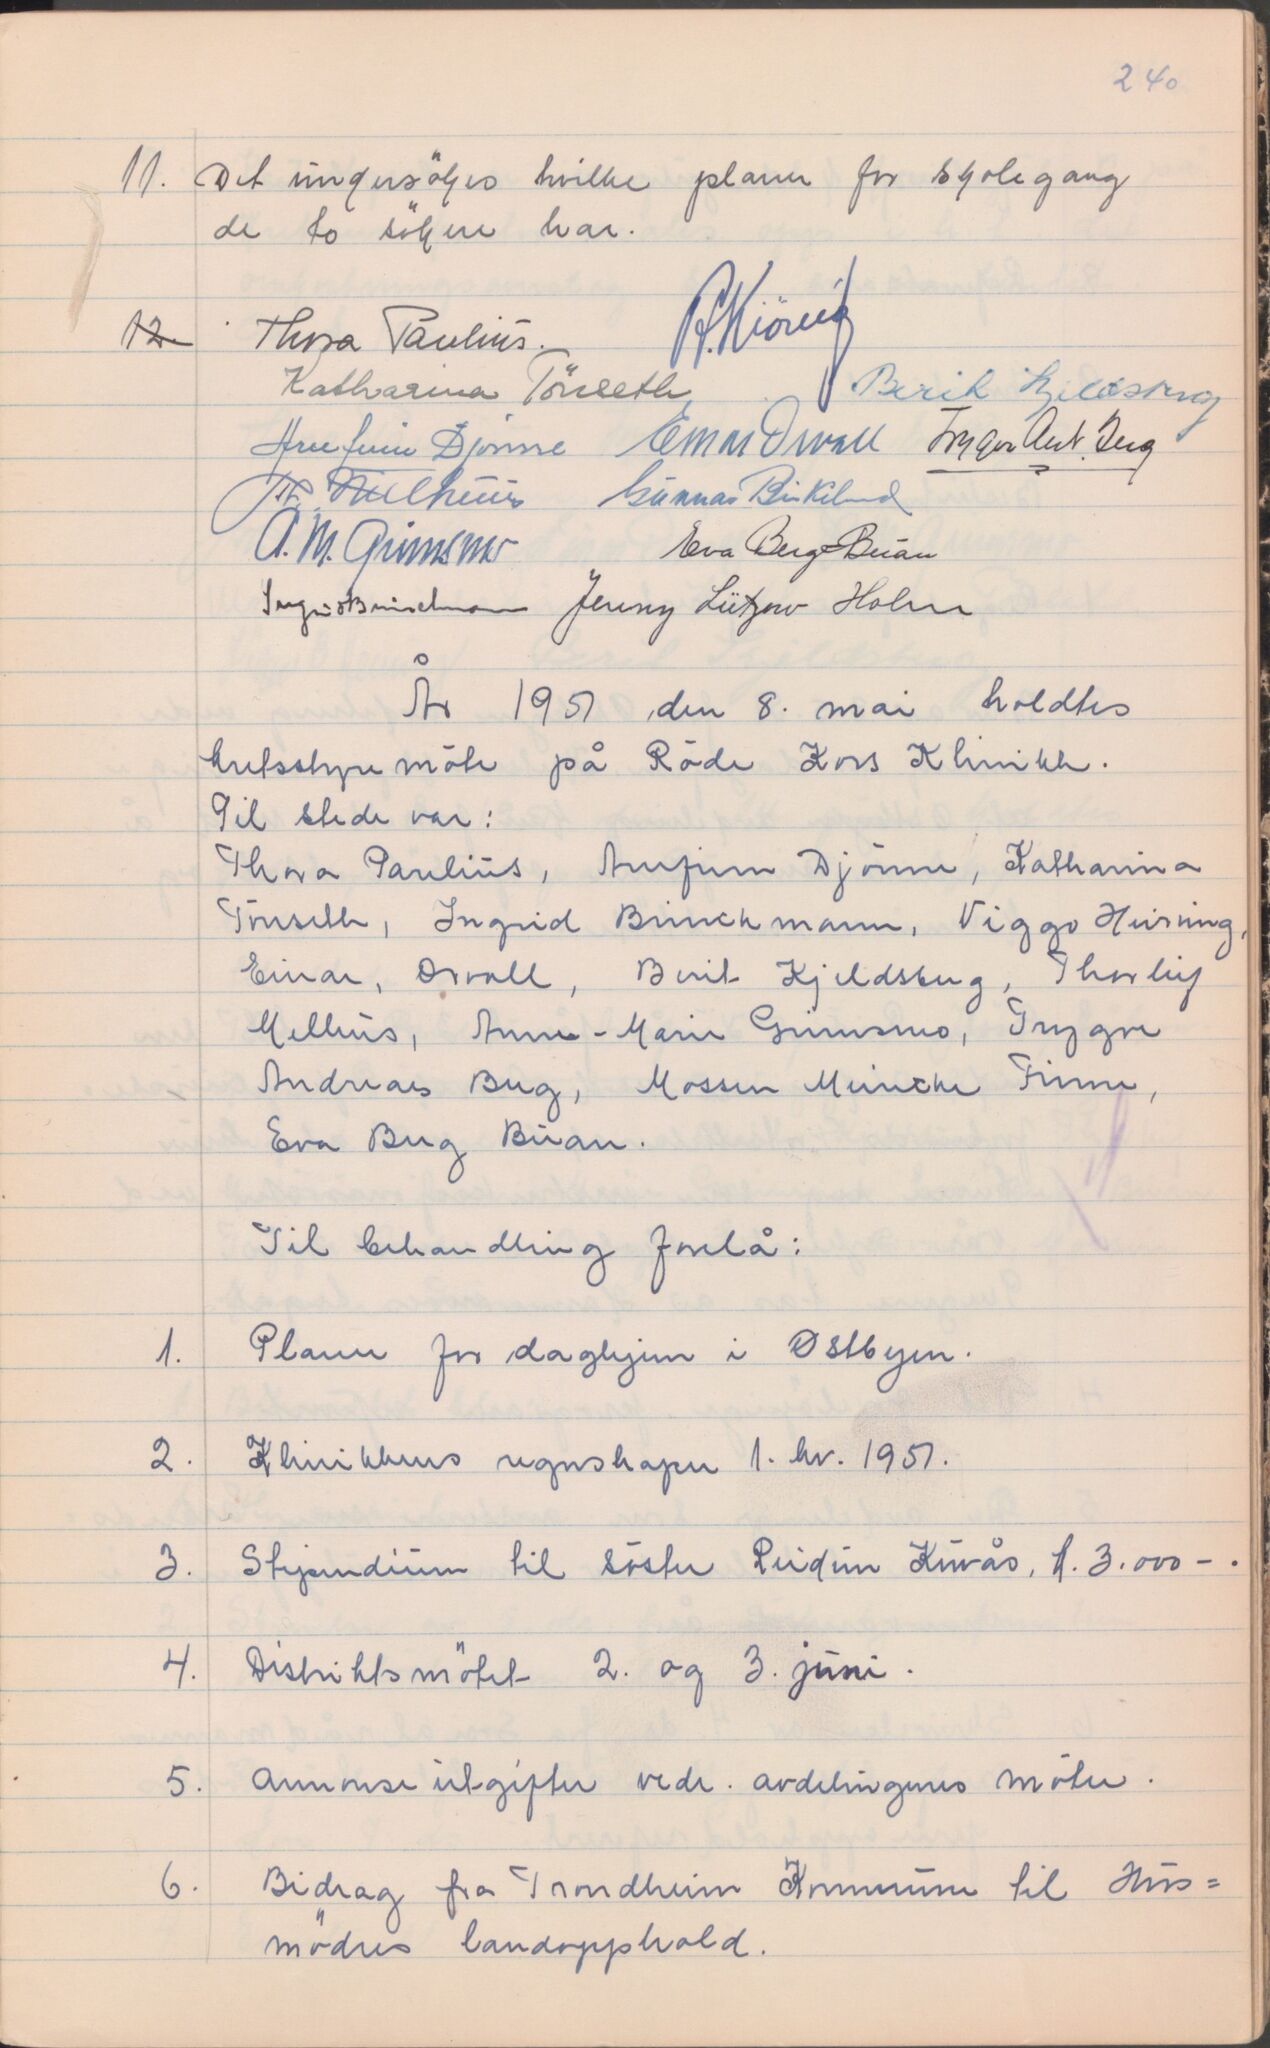 240
11. Det undersökes hvilke planer for skolegang
de to sökere har.
12 Thora Paulius.
Katharina Tönseth Berit Kjeldsberg
Arnfinn Djönne Einar Orvall Trygve Andr. Berg
Th. Melhuus Gunnar Birkelund
A. M. Grimsmo Eva Berg Buan
Ingrid Brinchmann Jenny Lützow Holm
År 1951 den 8. mai holdtes
kretsstyremöte på Röde Kors Klinikk.
Til stede var:
Thora Paulius, Arnfinn Djönne, Katharina
Tönseth, Ingrid Brinchmann, Viggo
Einar, Orvall, Berit Kjeldsberg, Thorleif
Melhus, Anne-Marie Grimsmo, Trygve
Andreas Berg, Mossen Meincke Finne,
Eva Berg Buan.
Til behandling forelå:
1. Planer for daghjem i Østbyen.
2. Klinikkens regnskaper 1. kv. 1951.
3. Stipendium til söster kr. 3.000-.
4. Distriktsmötet 2. og 3. juni.
5. Annonseutgifter vedr. avdelingenes möter.
6. Bidrag fra Trondheim Kommune til Hus=
mödres landopphold.